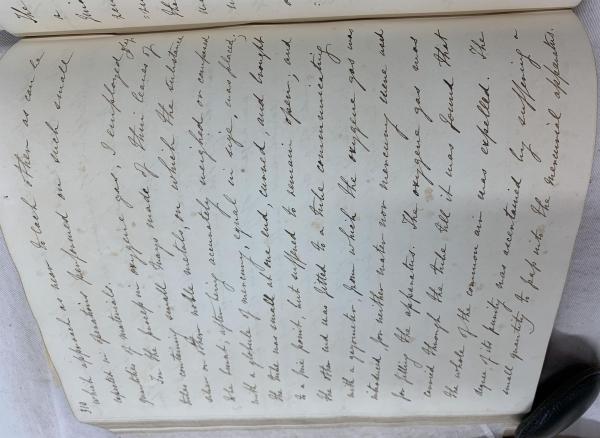 310
which approach as near to each other as can be
expected in operations performed on such small
quantities of materials.
In the process in oxygene gas, I employed
tubes containing small trays made of thin leaves of
silver or other noble metals, on which the substance
to be burnt, after being accurately weighed or compared
with a globule of mercury, equal in size, was placed;
the tube was small at one end, curved, and brought
to a fine point, but suffered to remain open; and
the other end was fitted to a tube communicating
with a gazometer, from which the oxygene gas was
introduced, for neither water nor mercury were used
for filling the apparatus. The oxygene gas was
carried through the tube till it was found that
the whole of the common air was expelled. The
degree of its purity was ascertained by suffering a
small quantity to pass into the mercurial apparatus.